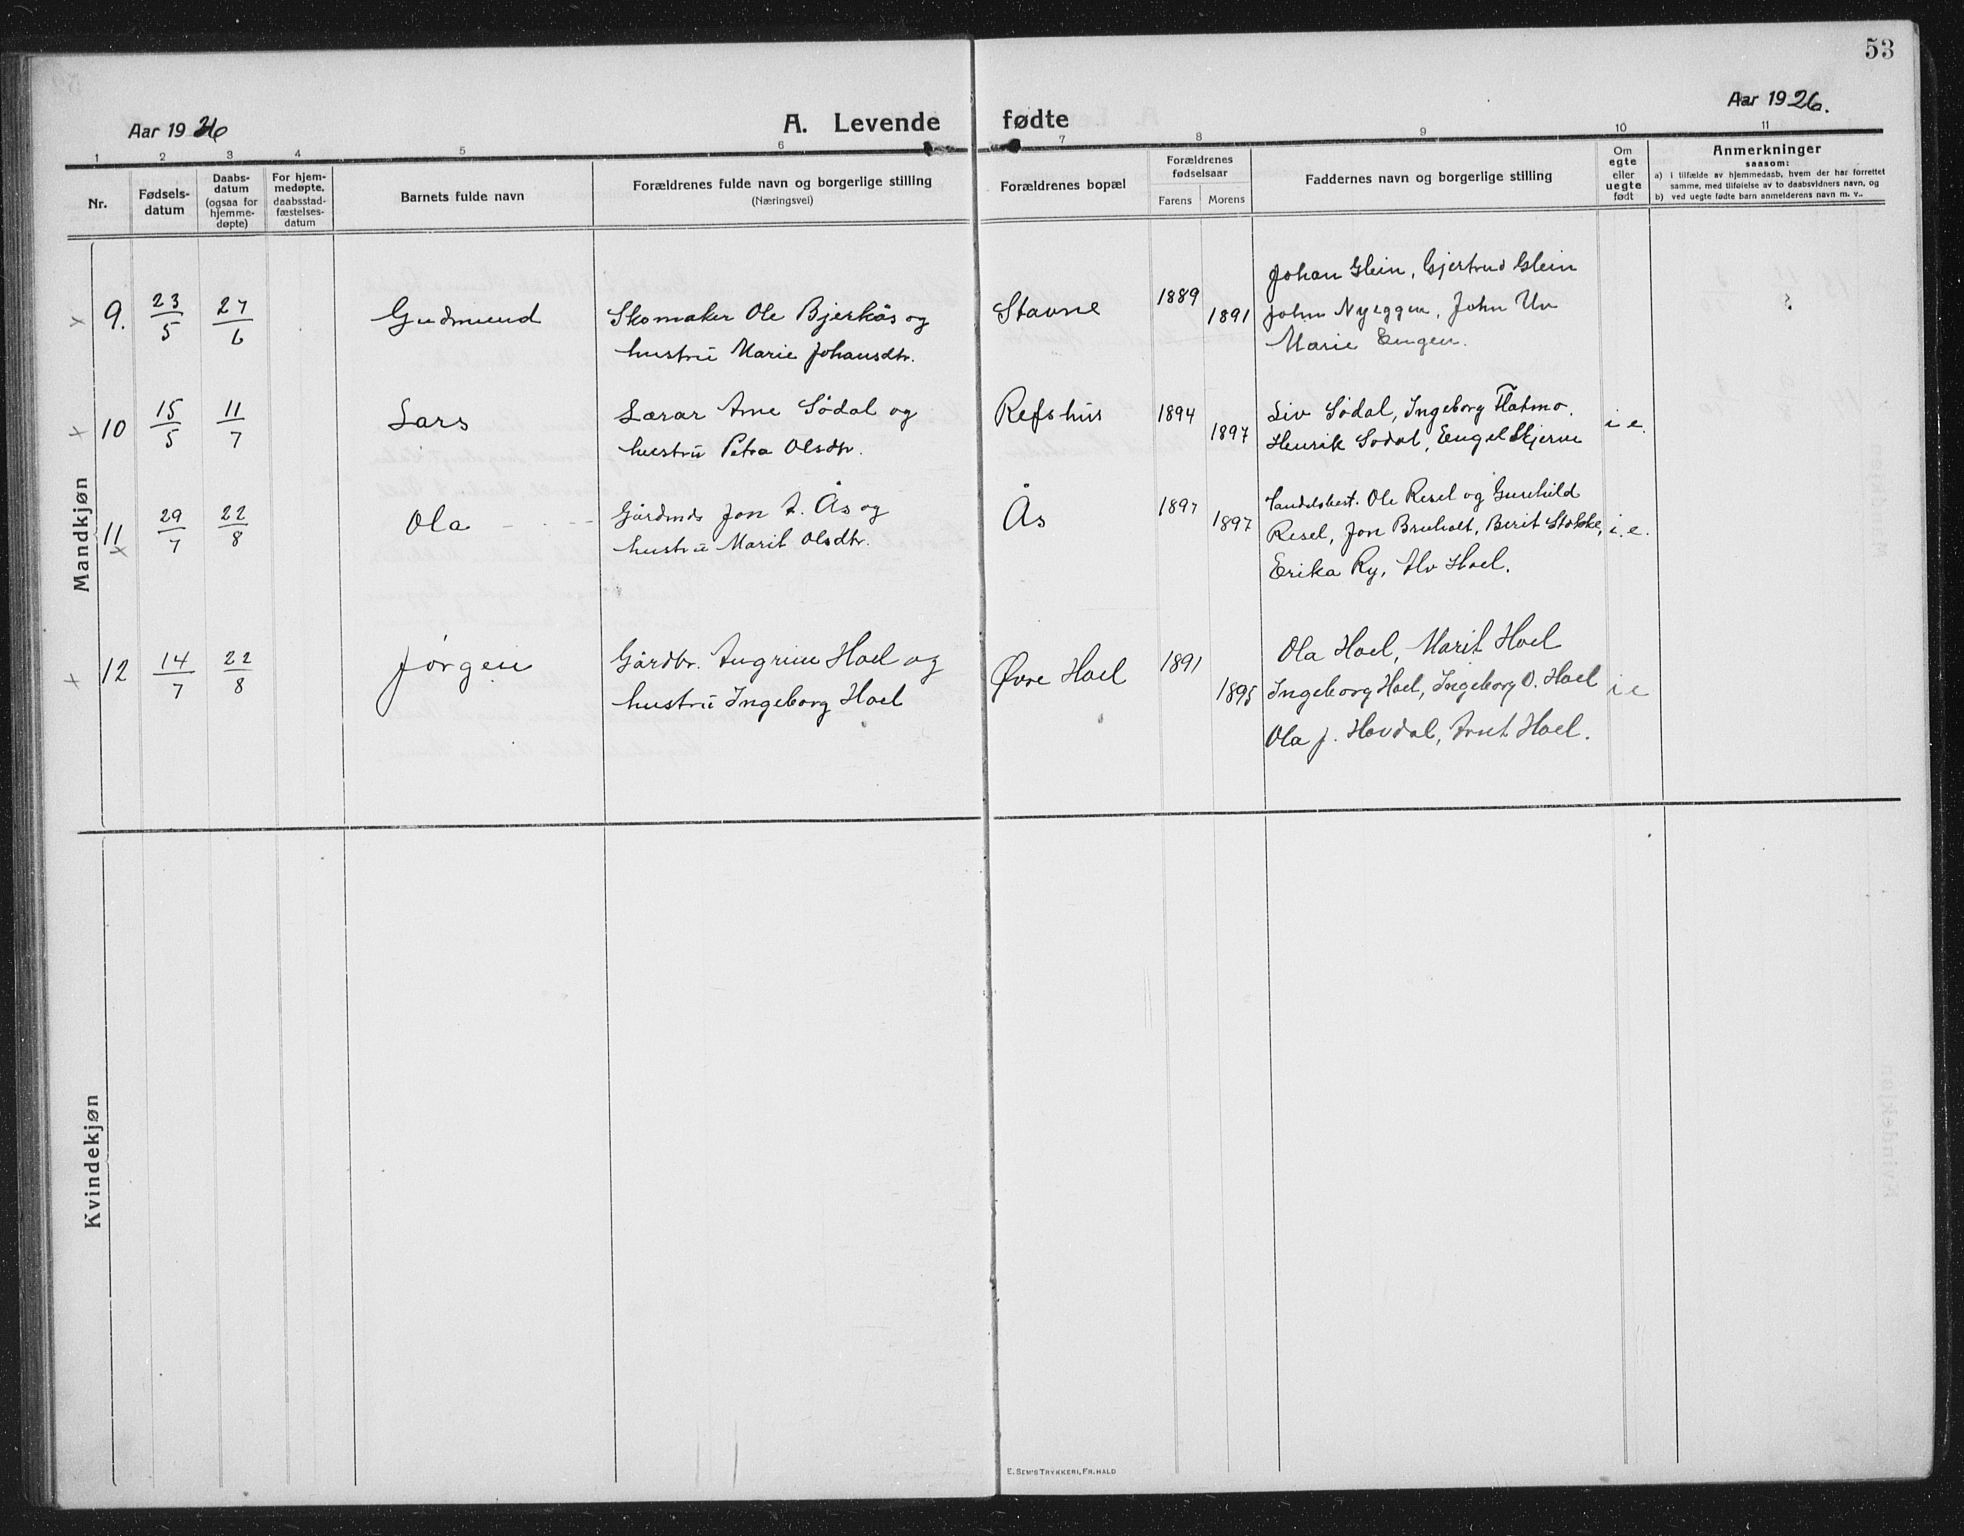 53
Aar 1926
A. Levende fødte
Aar 1926.
1 2 3 4 5 6 7 8 9 10 11
Nr.
Fødsels-
datum
Daabs-
datum
(ogsaa for
hjemme-
døpte)
For hjem-
medøpte,
daabsstad-
fæstelses-
datum
Barnets fulde navn
Forældrenes fulde navn og borgerlige stilling
(Næringsvei)
Forældrenes bopæl
Forældrenes
fødselsaar
Farens Morens
Faddernes navn og borgerlige stilling
Om
egte
eller
uegte
født
Anmerkninger
saasom:
a) i tilfælde av hjemmedaab, hvem der har forrettet
samme, med tilføielse av to daabsvidners navn, og
b) ved uegte fødte barn anmelderens navn m. v..
Mandkjøn
9. 23/5 27/6 Gudmund
Skomaker Ole Bjerkås og
hustru Marie Johansdtr.
Stavne 1889 1891
Johan Glein, Gjertrud Glein
John Nyeggen, John Uv
Marie Engen.
10 15/5 11/7 Lars
Lærar Arne Sødal og
hustru Petra Olsdtr.
Refshus 1894 1897
Liv Sødal, Ingeborg Flatmo.
Henrik Sødal, Engel Skjerve
i e.
11 29/7 22/8 Ola
Gårdmd. Jon A. Ås og
hustru Marit Olsdtr.
Ås 1897 1897
Handelsbest. Ole Resel og Gunhild
Resel, Jon Bruholt, Berit Stokke,
Erika Ry, Hoel.
i. e.
12 14/7 22/8 Jørgen
Gårdbr. Angrim Hoel og
hustru Ingeborg Hoel
Øvre Hoel 1891 1895
Ola Hoel, Marit Hoel
Ingeborg Hoel, Ingeborg O. Hoel
Ola J. Hovdal, Arnt Hoel.
i e
Kvindekjøn
E. Sem's Trykkeri, Fr.hald